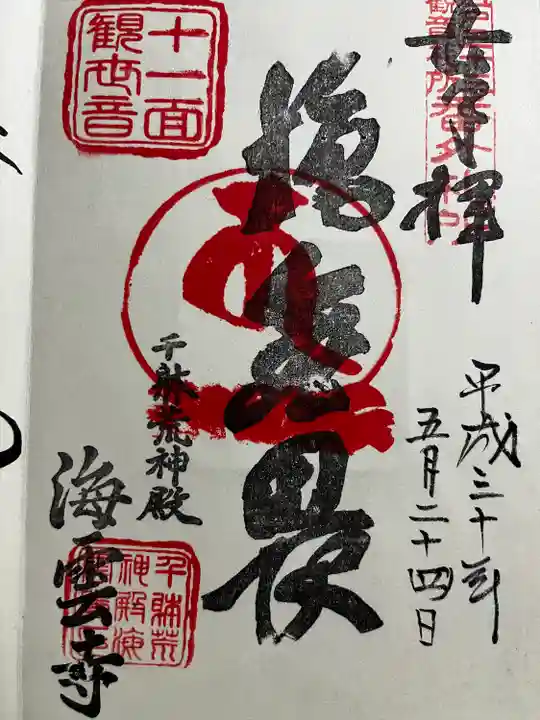 奉拝
平成三十年
五月二十四日
施無畏
十一面
観世音
千躰荒神殿
海雲寺
千躰荒
神殿海